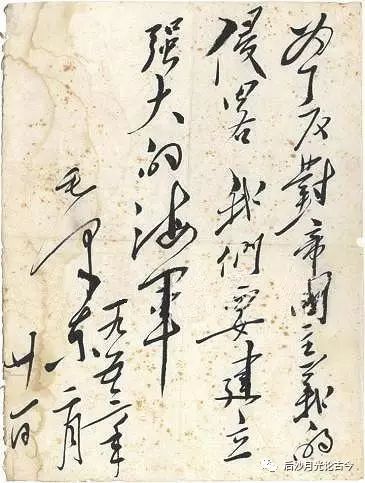 为了反對帝國主義的
侵畧 我們要建立
强大的海軍
毛泽东
一九五三年
二月
廿一日
后沙月光论古今